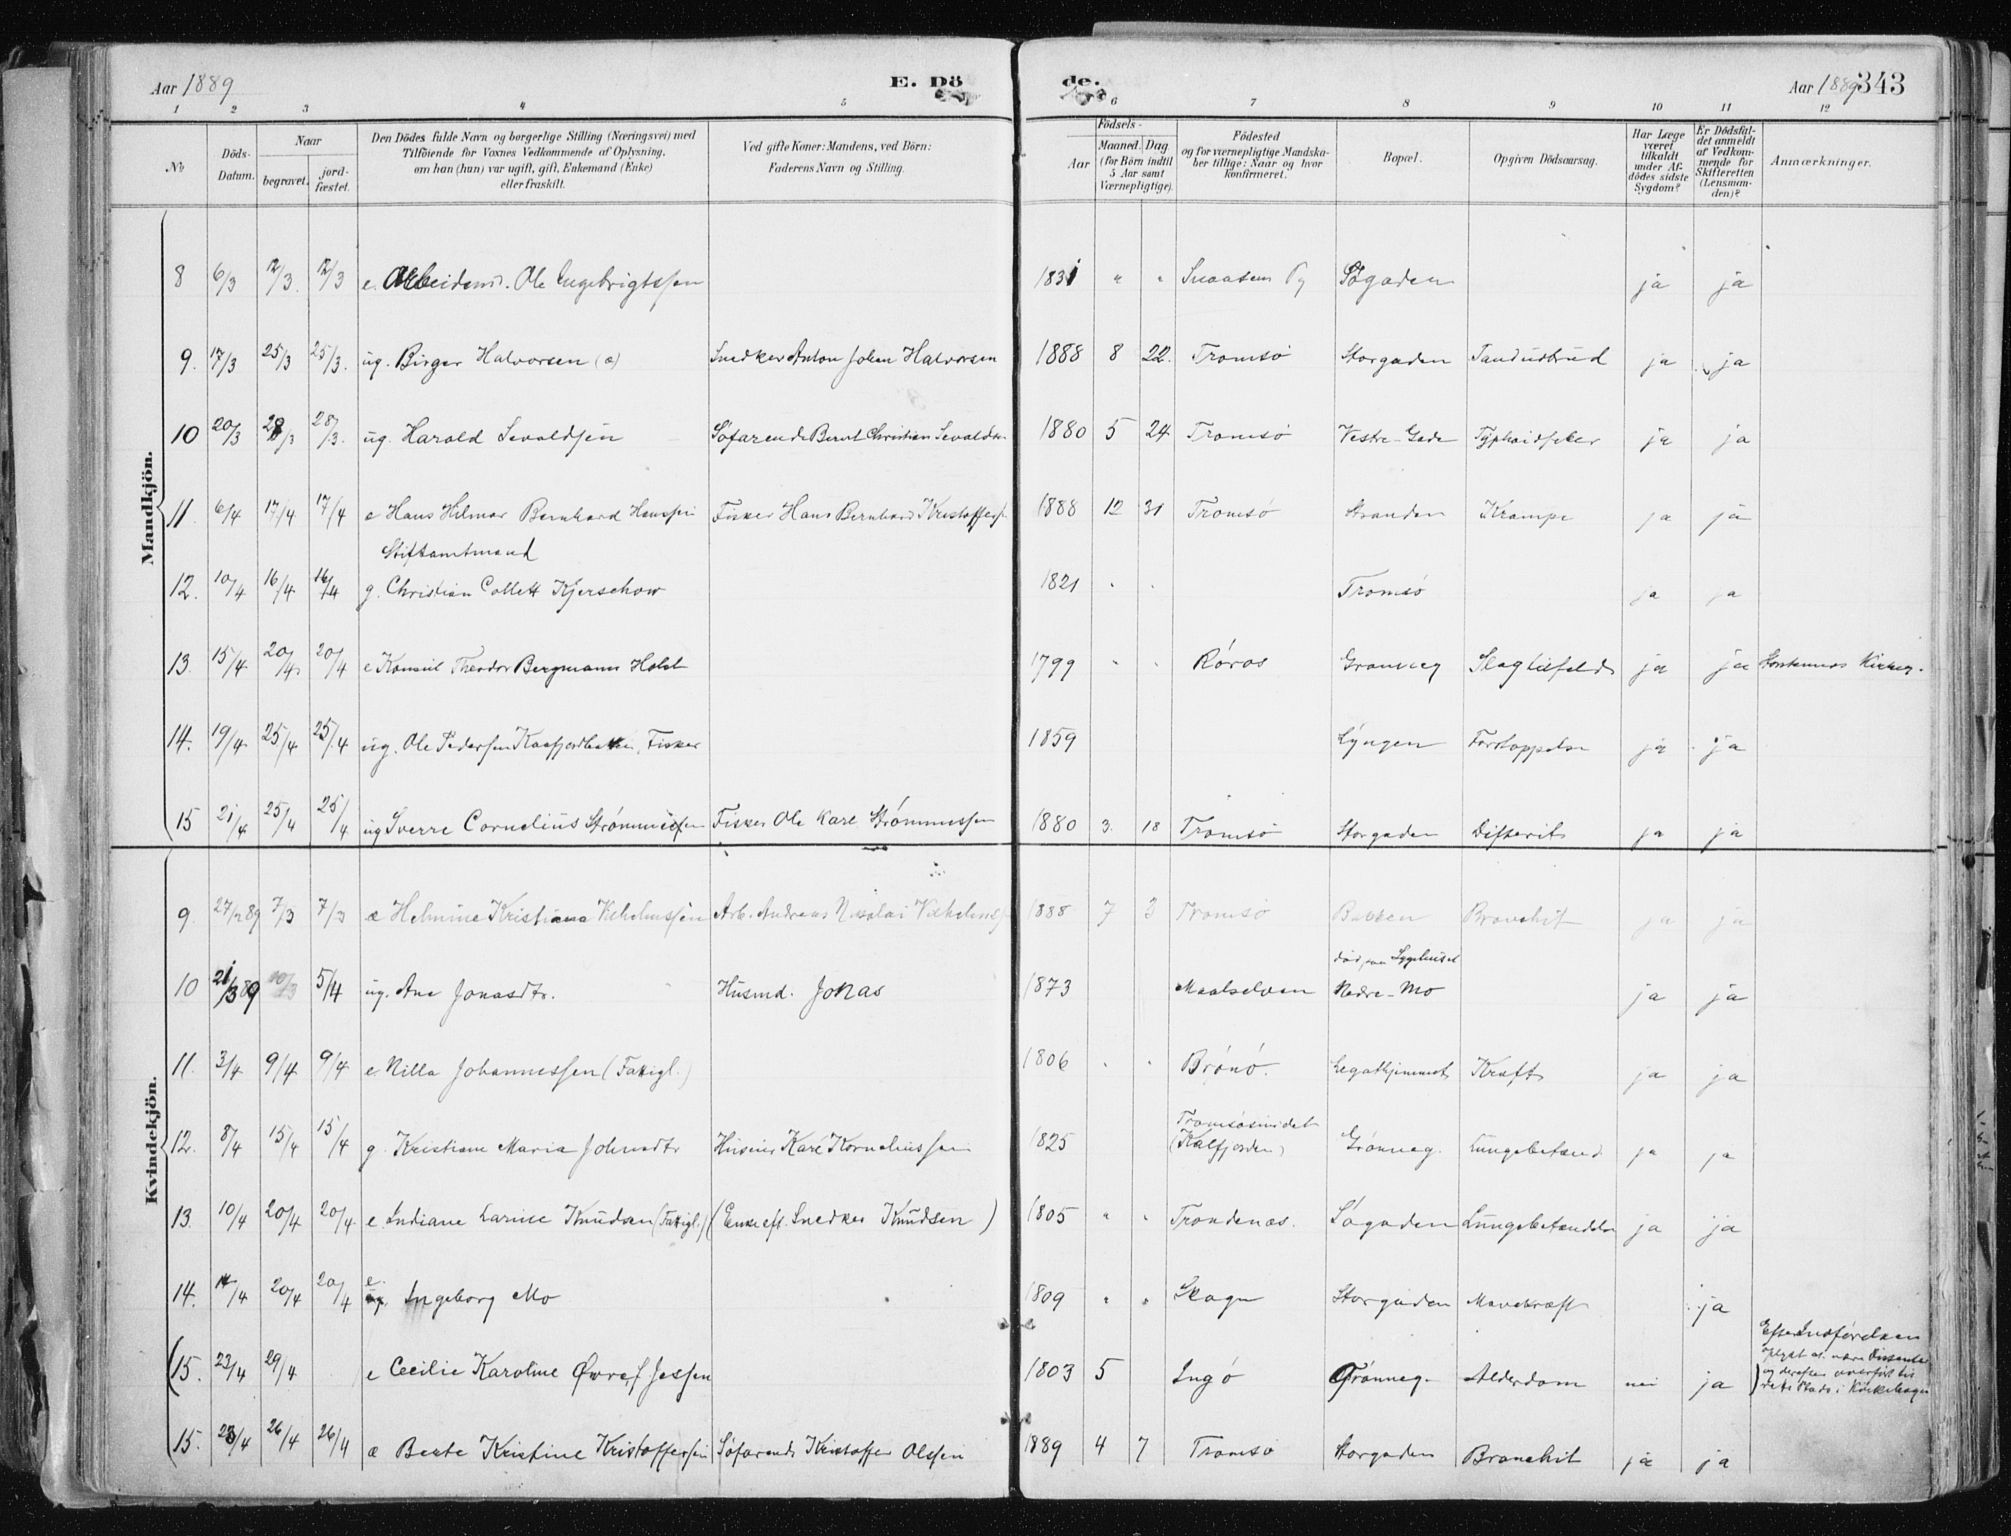 Aar 1889
E. Dö
de.
Aar 1889 343
1 2 3 4 5 6 7 8 9 10 11 12
№
Döds-Datum.
Naar
begravet.
jord-fæstet.
Den Dödes fulde Navn og borgerlige Stilling (Næringsvei) med
Tilföiende for Voxnes Vedkommende af Oplysning,
om han (hun) var ugift, gift, Enkemand (Enke)
eller fraskilt.
Ved gifte Koner: Mandens, ved Börn:
Faderens Navn og Stilling.
Födsels-
Aar
Maaned. Dag
(for Börn indtil
5 Aar samt
Værnepligtige).
Födested
og for værnepligtige Mandska-
ber tillige: Naar og hvor
konfirmeret.
Bopæl.
Opgiven Dödsaarsag.
Har Læge
været
tilkaldt
under Af-
dödes sidste
Sygdom?
Er Dödsfal-
det anmeldt
af Vedkom-
mende for
Skifteretten
(Lensman-
den)?
Anmærkninger.
Mandkjön.
8 6/3 12/3 12/3 e. Arbeidsmd. Ole Engebrigtssen 1831 " " Snaasens Pg Søgaden ja ja
9. 17/3 25/3 25/3. ug. Birger Halvorsen (æ) Snedker Anton Johan Halvorsen 1888 8 22. Tromsö Storgaden Tandudbrud ja ja
10 20/3 28/3 28/3. ug. Harald Sevaldsen Søfarende Bernt Christian Sevaldsn. 1880 5 24 Tromsö Vestre-Gade Typhoidfeber ja ja
11. 6/4 17/4 17/4 e Hans Hilmar Bernhard Hanssen Fisker Hans Bernhard Kristoffersn 1888 12 31 Tromsö Stranden Krampe ja ja
Stiftamtmand
12. 10/4 16/4 16/4 g. Christian Collett Kjerschow 1821 " " Tromsö ja ja
13. 15/4 20/4 20/4 e Konsul Theodor Bergmann Holst 1799 " " Røros Grønneg Slagtilfelde ja ja
14. 19/4 25/4 25/4 ug. Ole Pedersen Kaafjordbakken, Fisker 1859 Lyngen Forstoppelse ja ja
15 21/4 25/4 25/4 ug Sverre Cornelius Strømmesen Fisker Ole Karl Strømmessen 1880 3. 18 Tromsö Storgaden Difterit ja ja
Kvindekjön.
9. 27/2 89 7/3 7/3 æ Helmine Kristiana Vilhelmssen Arb. Andreas Nikolai Vilhelms 1888 7 3 Tromsö Bakken Bronchit ja ja
død paa Sygehuset
10 21/3 89 30/3 5/4 ug. Ane Jonasdtr. Husmd. Jonas 1873 Maalselven Nedre-Mo ja ja
11. 3/4 9/4 9/4 e. Nilla Johannessen (Fattigl.) 1806 " " Brönö. Legathjemmet Kræft ja ja
Tromsøsundet
12. 8/4 15/4 15/4 g. Kristiane Maria Johnsdtr Husmd Karl Korneliussen 1825 (Kalfjorden) Grønneg. Lungebetænd. ja ja
13. 10/4 20/4 20/4 e. Indiane Larnice Knudsen (Fattigl.) (Enke eft. Snedker Knudsen) 1805 " " Trondenæs. Søgaden Lungebetændelse ja ja
14. 14/4 20/4 20/4 e. ug. Ingeborg Mo 1809 " " Skogn Storgaden Mavekræft ja
(15. 23/4 29/4 e Cecilie Karoline Øwre f Jessen 1803 5 Ingö Grønneg. Alderdom nei ja
Efter Indførelsen
oplyst at være Dissenter
og derefter overført til
dets Plads i Kirkebogen
15. 23/4 26/4 26/4 æ Berte Kristine Kristoffersen Søfarende Kristoffer Olssen 1889 4 7 Tromsö Storgaden Bronchit ja ja